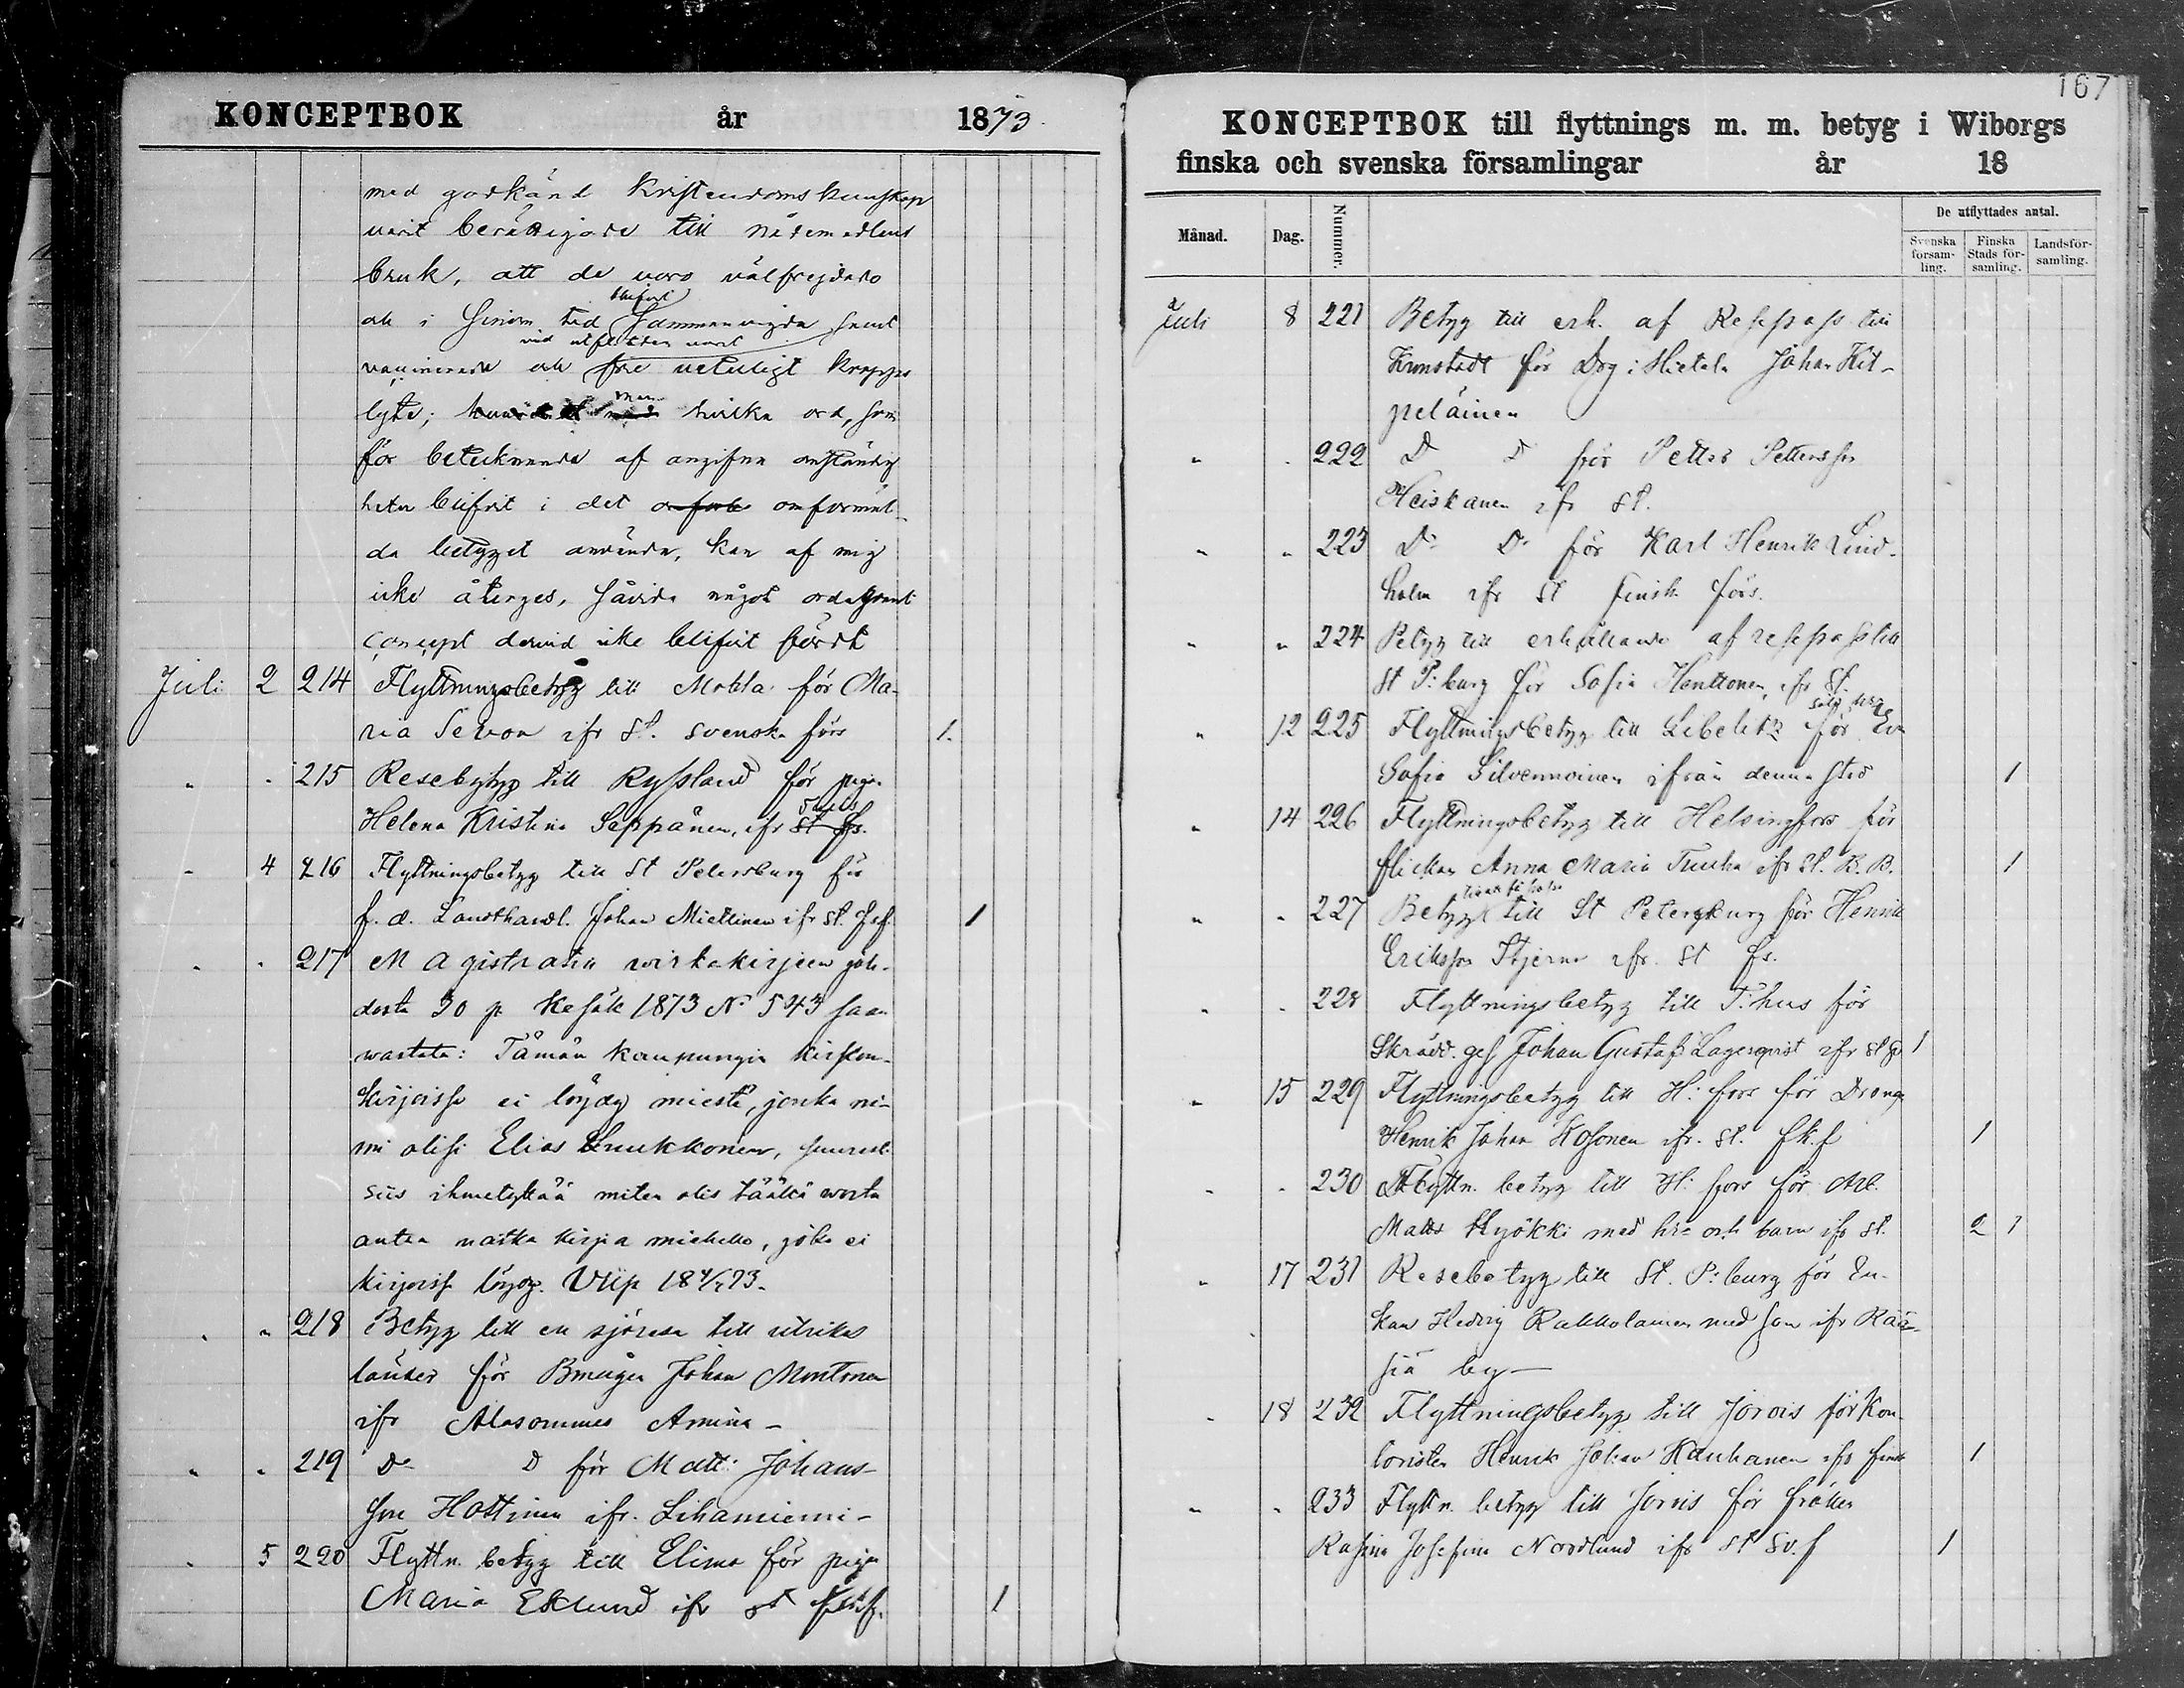 KONCEPTBOK år 1873.
med godkänd Kristendoms kunskap
varit berättigade till nådemedlens
bruk, att de voro välfrejdade
och i tid blifvit Sammanvigda samt
vaccinerade och vid utflyttn varit fri veterligt kropps
lyte; men hvilka ord, som
för betecknande af angifna omständig
heter blifvit i det omförmäl-
da betyget använda, kan af mig
icke återges, såvida något ordagrant
concept dervid icke blifvit fördt
Juli 2 214 Flyttningsbetyg till Mohla för Ma-
ria Sevon ifr St. svenska förs 1.
" " 215 Resebetyg till Ryssland för piga
Helena Kristina Seppänen, ifr St fs.
" 4 216 Flyttningsbetyg till St Petersburg för
f. d. Landthandl. Johan Miettinen ifr St. fsf. 1
" " 217 Magistratin wirkakirjeen joh-
dosta 30 p Kesäk 1873 No 543 saan
wastata: Tämän kaupungin kirkon-
kirjoissa ei löydy miestä, jonka ni-
mi olisi Elias Luukkonen, suuresti
siis ihmetyttää miten olis täältä woitu
antaa matka kirja miehelle, joka ei
kirjoissa löydy. Viip 18 4/7 73.
" " 218 Betyg till en sjöresa till utrikes
länder för Bmågen Johan Montonen
ifr Alasommes Amina -
" " 219 Do Do för Matts Johans-
son Hottinen ifr. Lihaniemi -
" 5 220 Flyttn. betyg till Elimä för piga
Maria Eklund ifr St fskf. 1
167
KONCEPTBOK till flyttnings m. m. betyg i Wiborgs
finska och svenska församlingar år 18
Månad. Dag. Nummer. De utflyttades antal.
Svenska församling. Finska Stads församling. Landsförsamling.
Juli 8 221 Betyg till erh. af Respass till
Kronstadt för Drg: Hietala Johan Hit-
peläinen
" " 222 D D för Petter Pettersson
Heiskanen ifr St.
" " 223 Do Do för Karl Henrik Lind-
holm ifr St finsk förs.
" " 224 Betyg till erhållande af respass till
St P:burg för Sofia Henttonen, ifr St.
" 12 225 Flyttningsbetyg till Libelits för Eva
Sofia Silvennoinen ifrån denna stad 1
" 14 226 Flyttningsbetyg till Helsingfors för
flickan Anna Maria Truuha ifr St. R. B. 1
" " 227 Betyg till St Petersburg för Henrik
Eriksson Stjerna ifr. St fs.
" " 228 Flyttningsbetyg till T:hus för
Skrädd. ges Johan Gustaf Lagerqvist ifr St sv 1
" 15 229 Flyttningsbetyg till H:fors för Dreng
Henrik Johan Kosonen ifr. St. fk.f 1
" " 230 Flyttn. betyg till H:fors för Arb.
Matts Kyökki med hu och barn ifr St. 2 1
" 17 231 Resebetyg till St. P:burg för En-
kan Hedvig Rakkolainen med son ifr Kää-
siä by -
" 18 232 Flyttningsbetyg till Jorois för Kon-
toristen Henrik Johan Kauhanen ifr finsk 1
" " 233 Flyttn. betyg till Jorois för fröken
Rosina Josefina Nordlund ifr St Sv.f 1